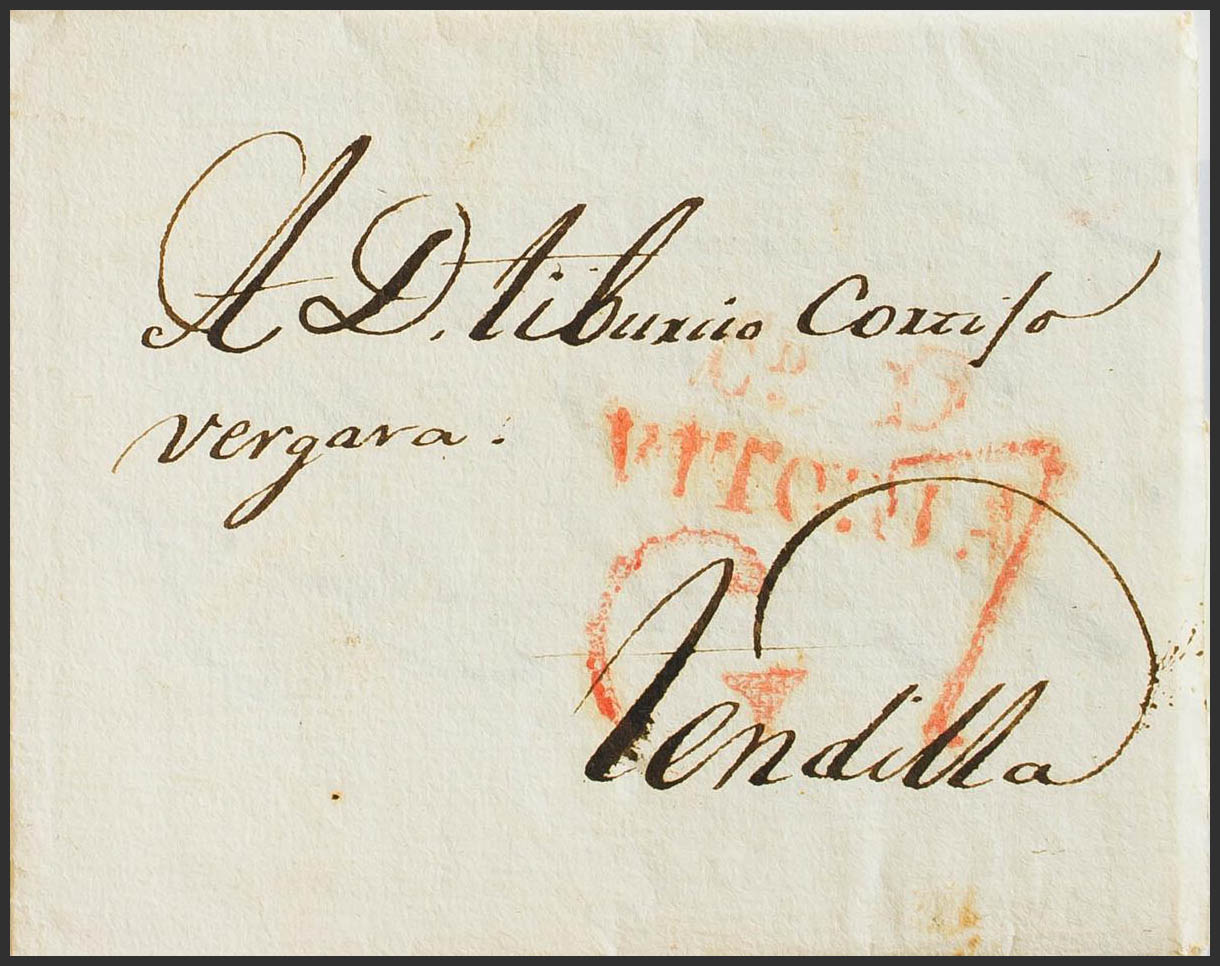 A D. tiburcio Corciso
vergara.
C.D D
VITORIA
7
Tendilla